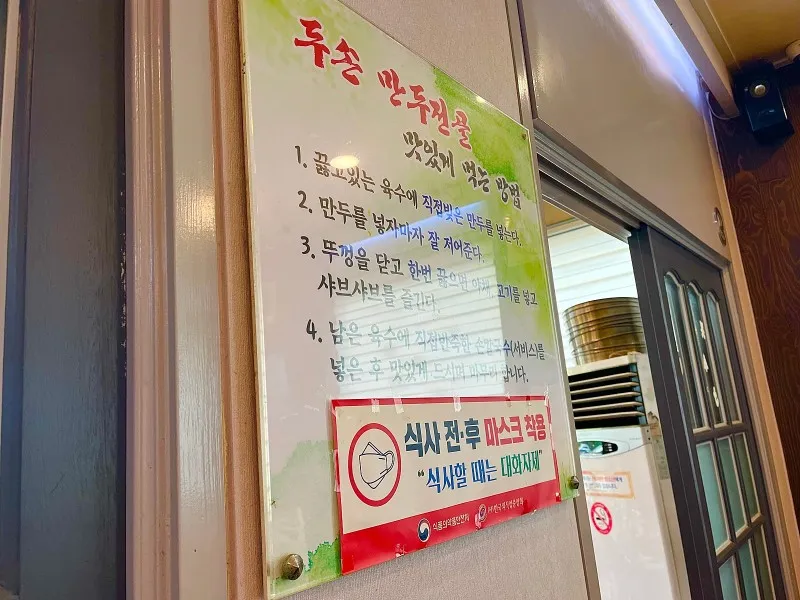 두손 만두전골
맛있게 먹는 방법
1. 끓고있는 육수에 직접빚은 만두를 넣는다.
2. 만두를 넣자마자 잘 저어준다.
3. 뚜껑을 닫고 한번 끓으면 야채, 고기를 넣고
샤브샤브를 즐긴다.
4. 남은 육수에 직접반죽한 손칼국수(서비스)를
넣은 후 맛있게 드시며 마무리 합니다.
식사 전·후 마스크 착용
“식사할 때는 대화자제”
식품의약품안전처